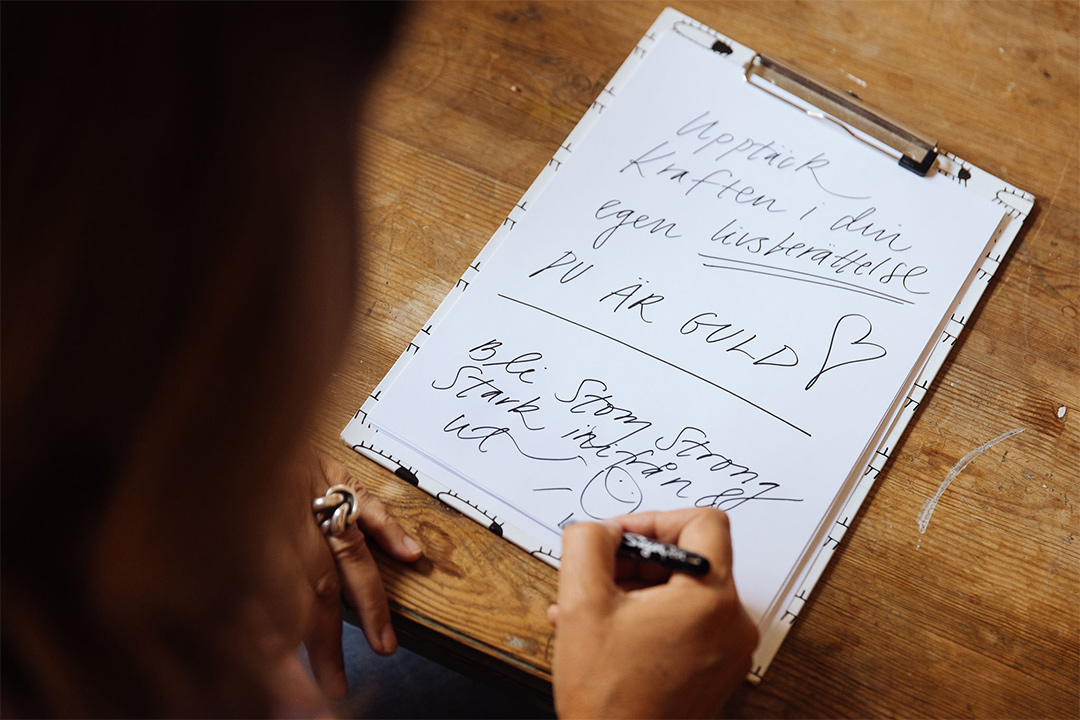 Upptäck
Kraften i din
egen livsberättelse
DU ÄR GULD
Bli Stom Strong
Stark inifrån &
ut